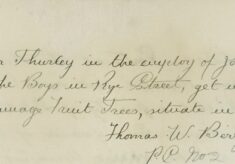 Thurley in the employ of
the Boys in Rye Street, get
Fruit Trees, situate in
Thomas W. Ber
P.P. No 2